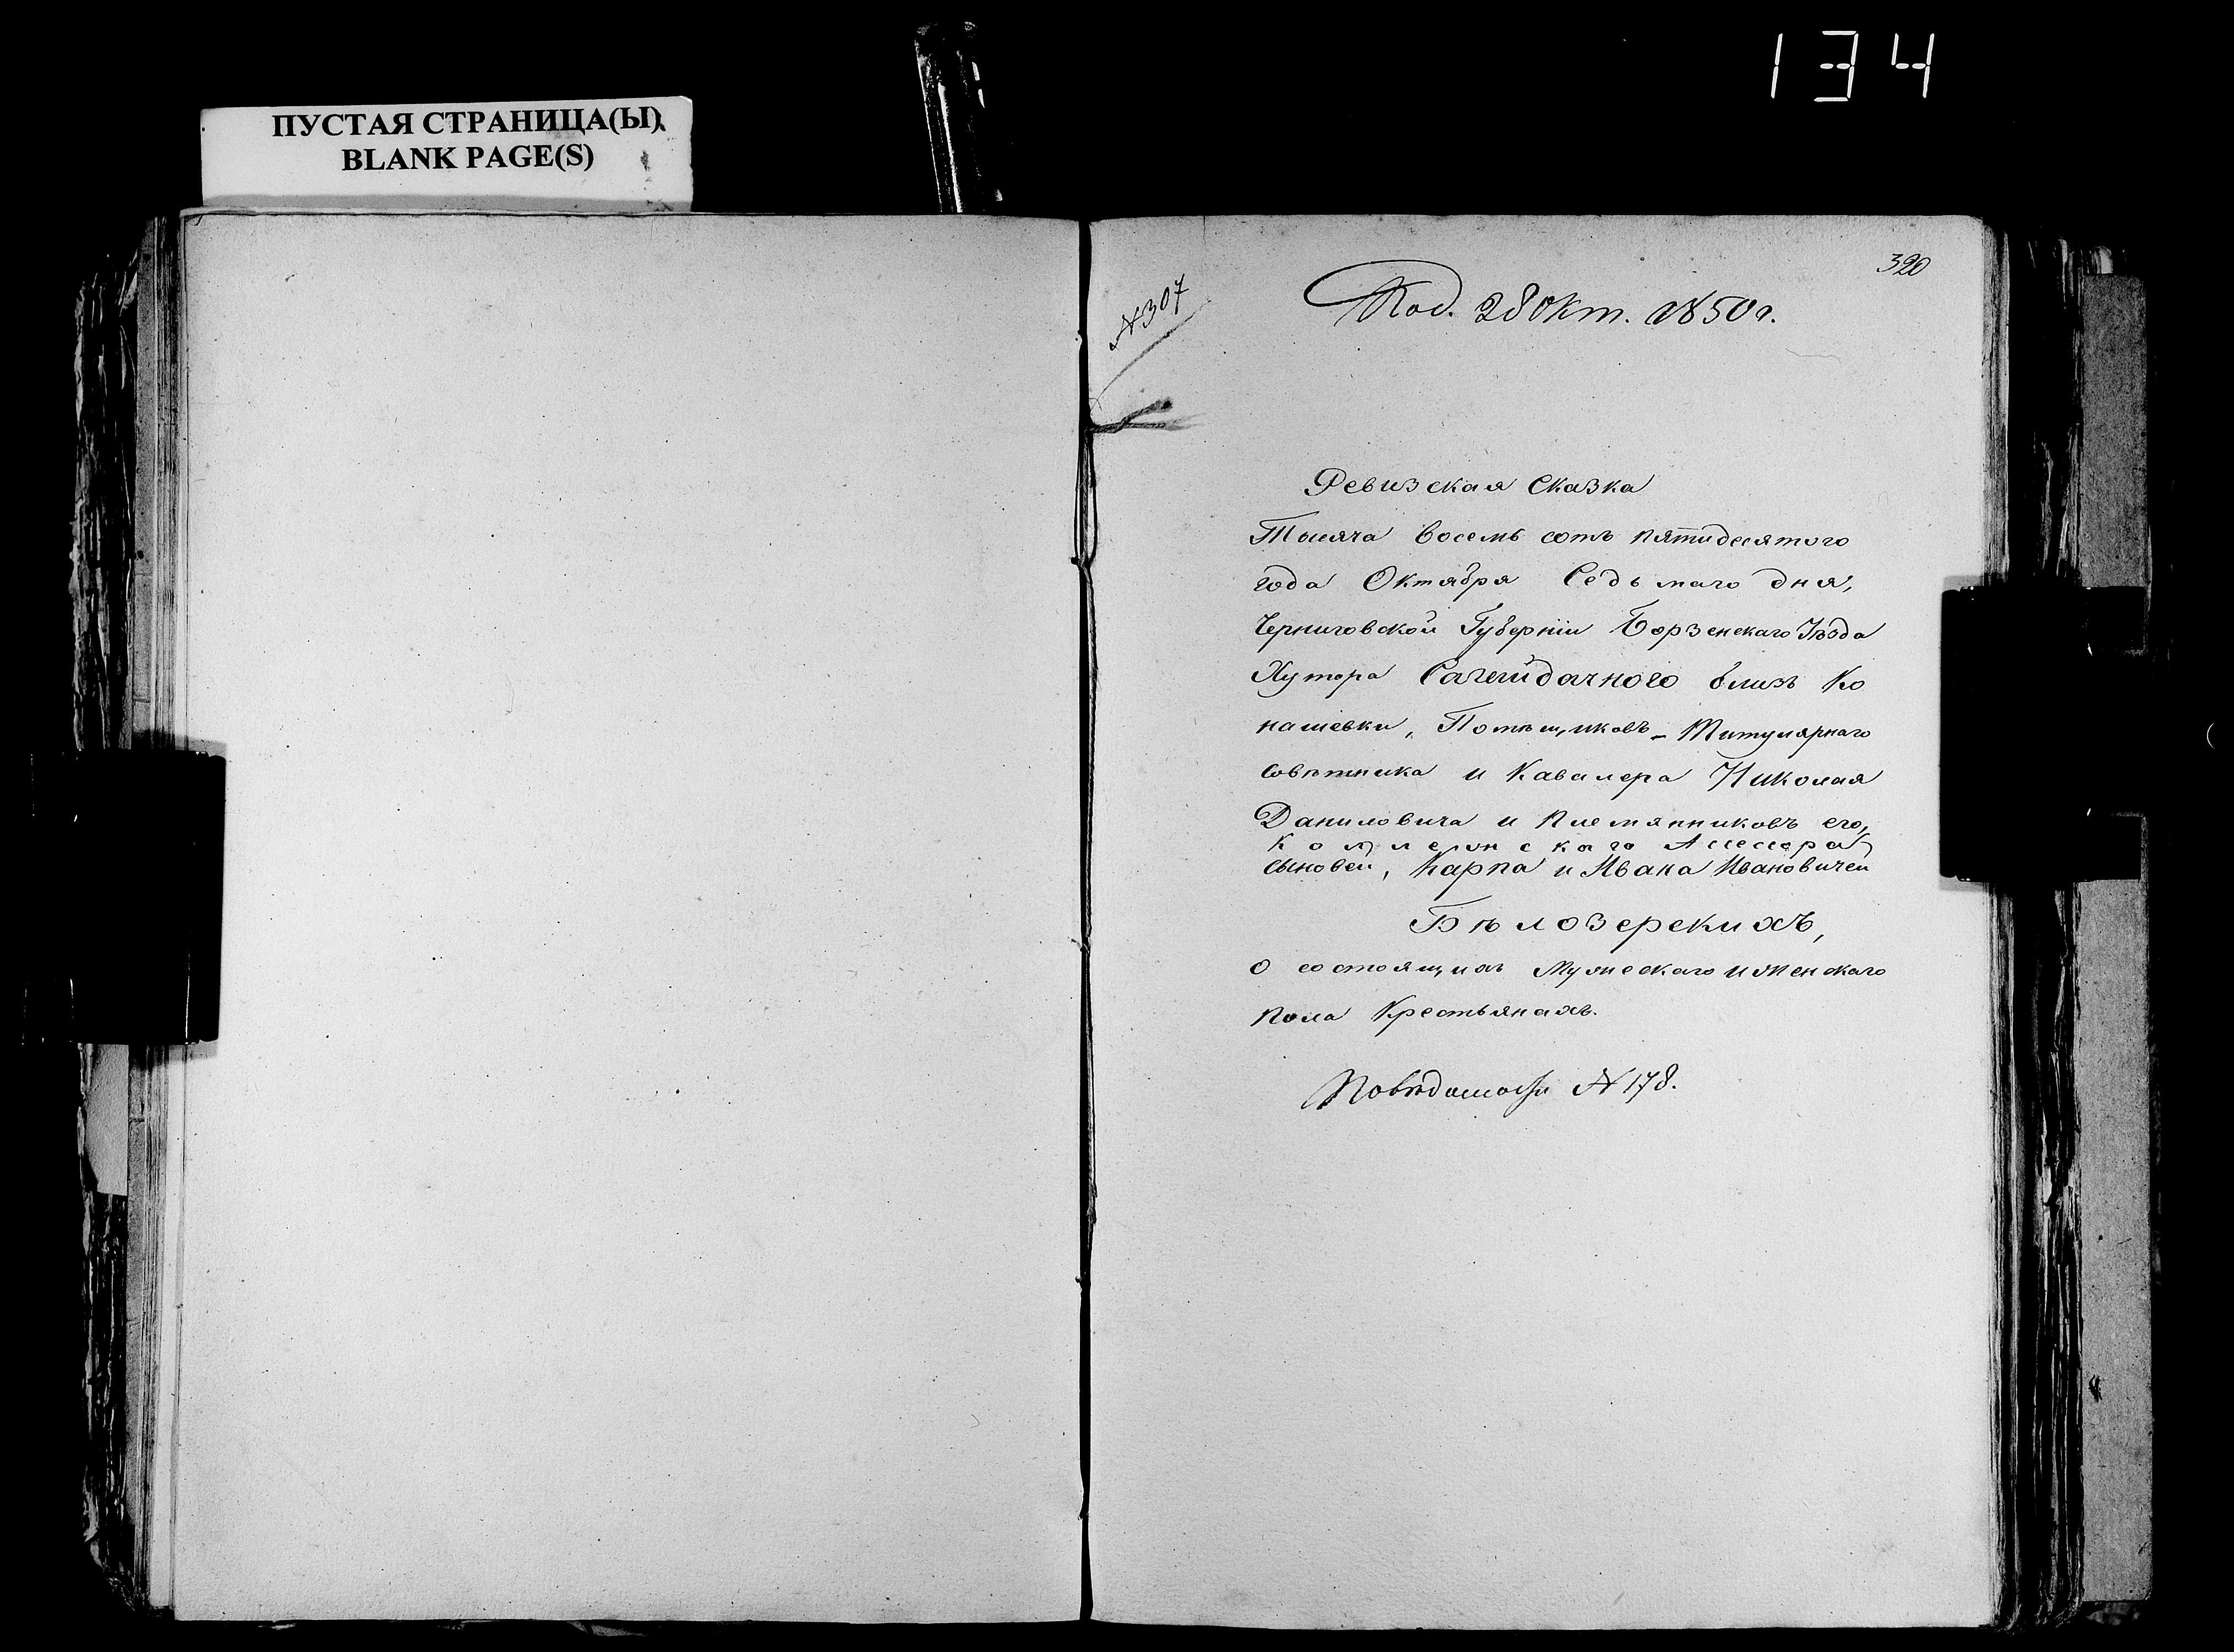 134
ПУСТАЯ СТРАНИЦА(Ы)
BLANK PAGE(S)
320
№ 307
Под. 28 Окт. 1850 г.
Ревизская Сказка
Тысяча восемь сотъ пятидесятого
года Октября Седьмаго дня,
Черниговской Губерніи Борзенскаго Уѣзда
Хутора Сагайдачного близь Ко
нашевки, Помѣщиковъ - Титулярнаго
Совѣтника и Кавалера Николая
Даниловича и Племянниковъ его,
Коллежскаго Ассесора
сыновей, Карпа и Ивана Ивановичей
Бѣлозерскихъ,
о состоящихъ Мужескаго и женскаго
пола Крестьянахъ.
По вѣдомости № 178.